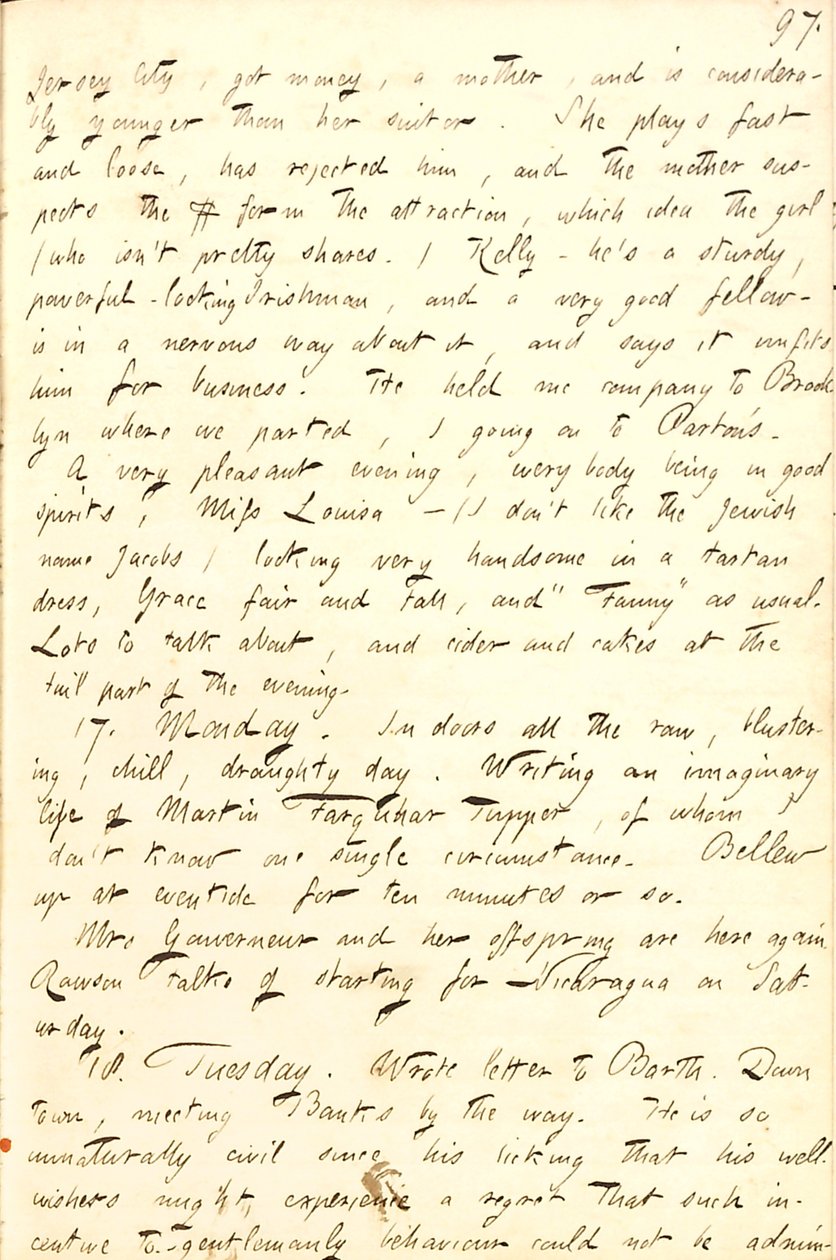 97.
Jersey City, got money, a mother, and is considera-
bly younger than her suitor. She plays fast
and loose, has rejected him, and the mother sus-
pects the $ form the attraction, which idea the girl
(who isn't pretty shares.) Kelly - he's a sturdy,
powerful-looking Irishman, and a very good fellow -
is in a nervous way about it, and says it unfits
him for business. He held me company to Brook
lyn where we parted, I going on to Parton's.
A very pleasant evening, every body being in good
spirits, Miss Louisa - (I don't like the Jewish
name Jacobs) looking very handsome in a tartan
dress, Grace fair and tall, and "Fanny" as usual.
Lots to talk about, and cider and cakes at the
tail part of the evening.
17. Monday. In doors all the raw, bluster-
ing, chill, draughty day. Writing an imaginary
life of Martin Farquhar Tupper, of whom I
don't know one single circumstance. Bellew
up at eventide for ten minutes or so.
Mrs Gouverneur and her offspring are here again.
Rawson talks of starting for Nicaragua on Sat-
urday.
18. Tuesday. Wrote letter to Barth. Down
town, meeting Banks by the way. He is so
unnaturally civil since his licking that his well
wishers might experience a regret that such in-
centive to gentlemanly behaviour could not be admin-